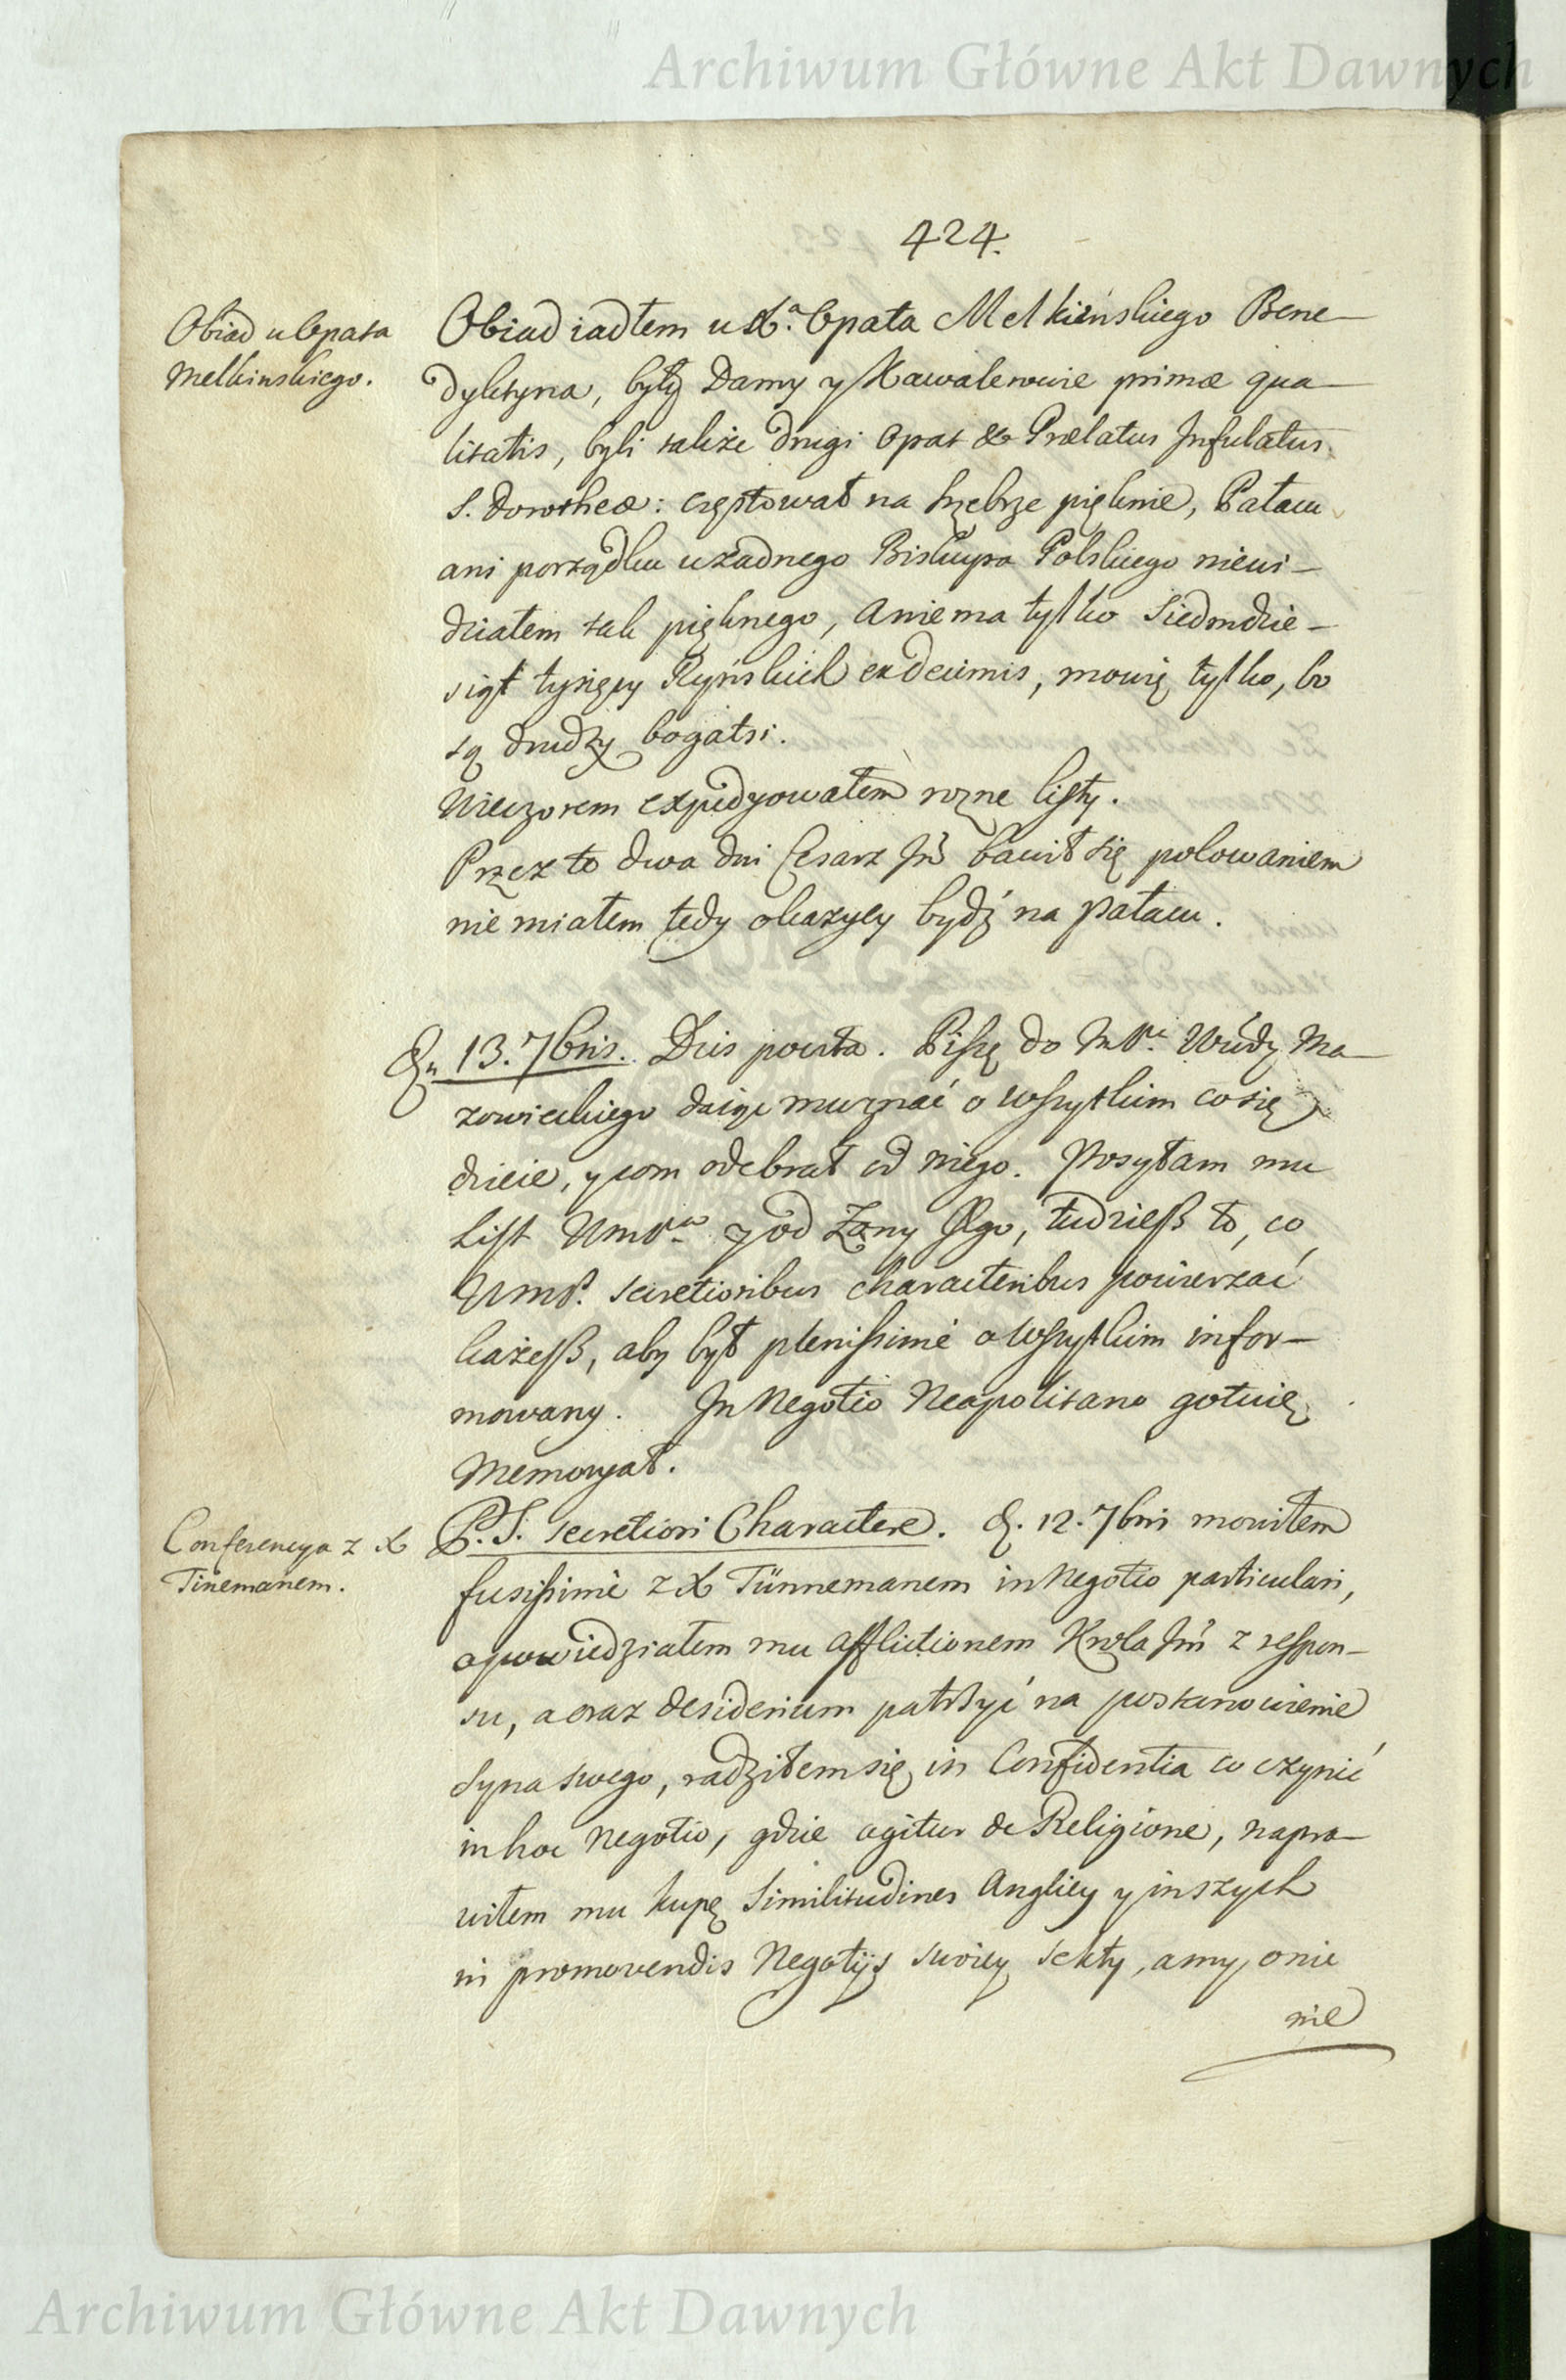 Archiwum Główne Akt Dawnych
424.
Obiad u Opata
Melkinskiego.
Obiad iadłem u X.ª Opata Melkieńskiego Bene-
dyktyna, były Damy y Kawalerowie primæ qua-
litatis, byli także drugi Opat & Prælatus Infulatus
S. Dorotheæ: częstował na srzebrze pięknie, Pałacu
ani porządku u żadnego Biskupa Polskiego niewi-
działem tak pięknego, a niema tylko siedmdzie-
siąt tysięcy Ryńskich ex decimis, mowię tylko, bo
są drudzy bogatsi.
Wieczorem expedyowałem rozne listy.
Przez te dwa dni Cesarz Jm̃ bawił się polowaniem
nie miałem tedy okazyey bydź na pałacu.
D. 13. 7bris. Dzis poczta. Piszę do JmP.ª Wdy Ma-
zowieckiego daiąc mu znać o wszytkim co się
dzieie, y com odebrał od niego. Posyłam mu
List WmP.ª y od Zony Jego, tudzież to, co
WmP. secretioribus characteribus powierzać
każesz, aby był plenissimè o wszytkim infor-
mowany. In Negotio Neapolitano gotuię
Memoryał.
Conferencya z X
Tinemanem.
P.S. secretiori Charactere. d. 12. 7bris mowiłem
fusissimè z X Tünnemanem in Negotio particulari,
opowiedziałem mu afflictionem Krola Jm̃ z respon-
su, a oraz desiderium patrzyć na postanowienie
syna swego, radziłem się in Confidentia co czynić
in hoc negotio, gdzie agitur de Religione, napra-
wiłem mu kupę Similitudines Angliey y inszych
in promovendis Negotijs swoiey sekty, a my o nie
nie
Archiwum Główne Akt Dawnych